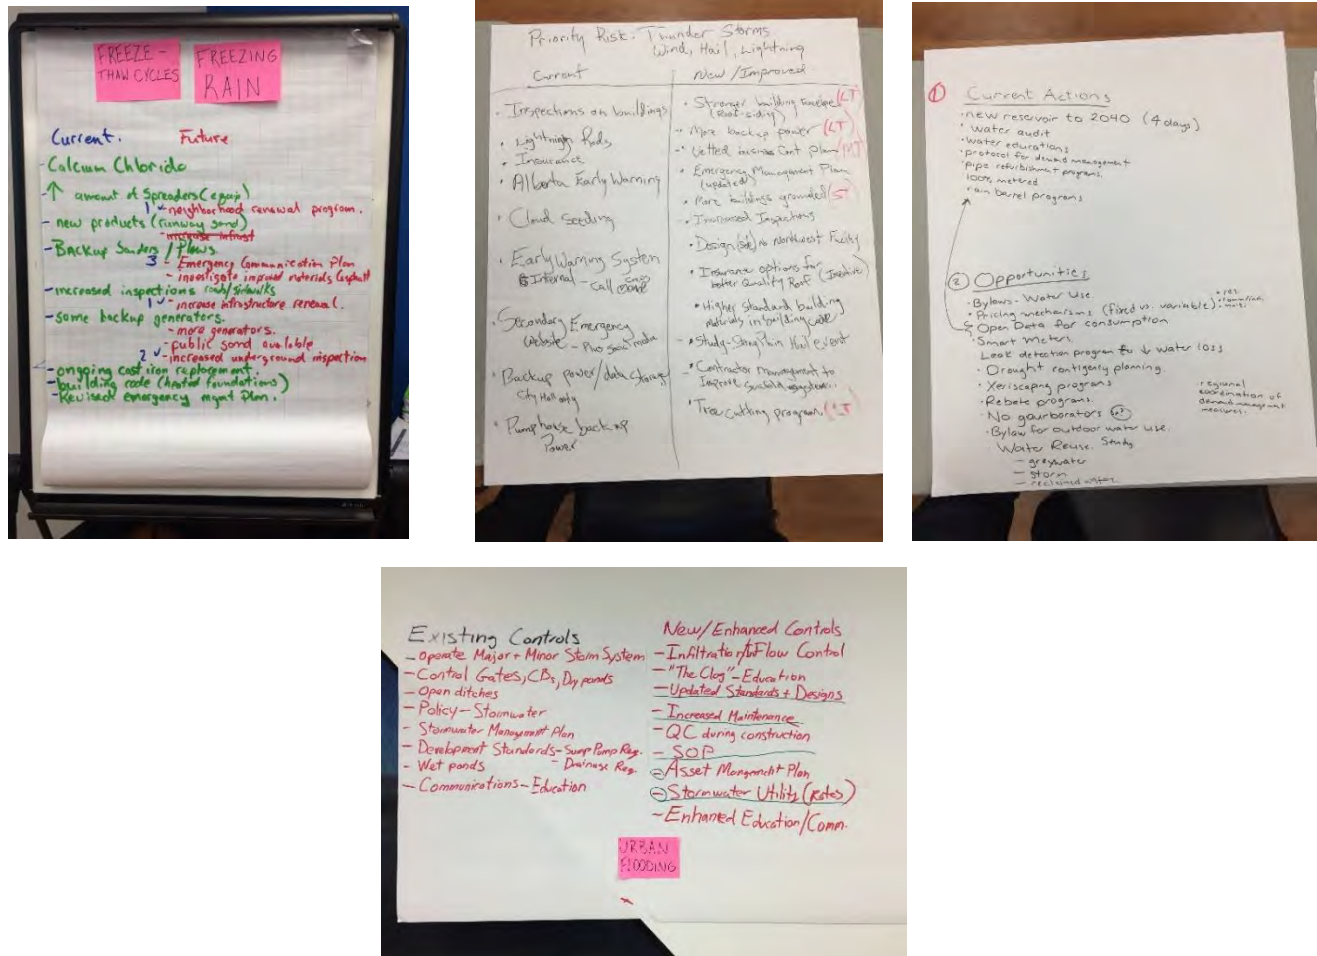 FREEZE -
THAW CYCLES
FREEZING
RAIN
Current.
Future
- Calcium Chloride
- ↑ amount of Spreaders (equip)
1 ✓ - neighborhood renewal program.
- new products (runway sand)
- increase infrast
- Backup Sanders / Plows.
3 - Emergency Communication Plan
- investigate improved materials (asphalt
- increased inspections road/sidewalks
1 ✓ - increase infrastructure renewal.
- some backup generators.
- more generators.
- public sand available
2 ✓ - increased underground inspection
- ongoing cast iron replacement.
- building code (heated foundations)
- Revised emergency mgmt Plan.
Priority Risk: Thunder Storms
Wind, Hail, Lightning
Current
• Inspections on buildings
• Lightning Rods
• Insurance
• Alberta Early Warning
• Cloud Seeding
• Early Warning System
Internal - Call
• Secondary Emergency
Website - Plus social media
• Backup power/data storage
City Hall only
• Pumphouse backup
Power
New/Improved
• Stronger building Envelope (LT)
(Roof-siding)
• More backup power (LT)
• Vetted business Cont plan MT
• Emergency Management Plan
(updated)
• More buildings grounded (ST)
• Increased Inspections
• Design (site) no Northwest Facility
• Insurance options for
better Quality Roof (Incentive)
• Higher Standard building
materials in building code
• Study - Hail event
• Contractor Management to
Improve
• Tree cutting program (LT)
① Current Actions
• new reservoir to 2040 (4 days)
• water audit
• water educations
• protocol for demand management
• pipe refurbishment programs.
100% metered
• rain barrel programs
② Opportunities
• Bylaws - Water Use.
• Pricing mechanisms (fixed vs. variable)
• res.
• Open Data for consumption
• Smart meters.
Leak detection program ↓ water loss
• Drought contigency planning.
• Xeriscaping programs
• Rebate programs.
• No gaurborators
• Bylaw for outdoor water use.
Water Reuse Study
- greywater
- storm
- reclaimed water
• regional
coordination of
demand management
measures.
Existing Controls
- Operate Major + Minor Storm System
- Control Gates, CBs, Dry ponds
- Open ditches
- Policy - Stormwater
- Stormwater Management Plan
- Development Standards - Sump Pump Reg.
- Drainage Reg.
- Wet ponds
- Communications - Education
New/Enhanced Controls
- Infiltration/InFlow Control
- "The Clog" - Education
- Updated Standards + Designs
- Increased Maintenance
- QC during construction
- SOP
- Asset Mangement Plan
- Stormwater Utility (Rates)
- Enhanced Education/Comm.
URBAN
FLOODING